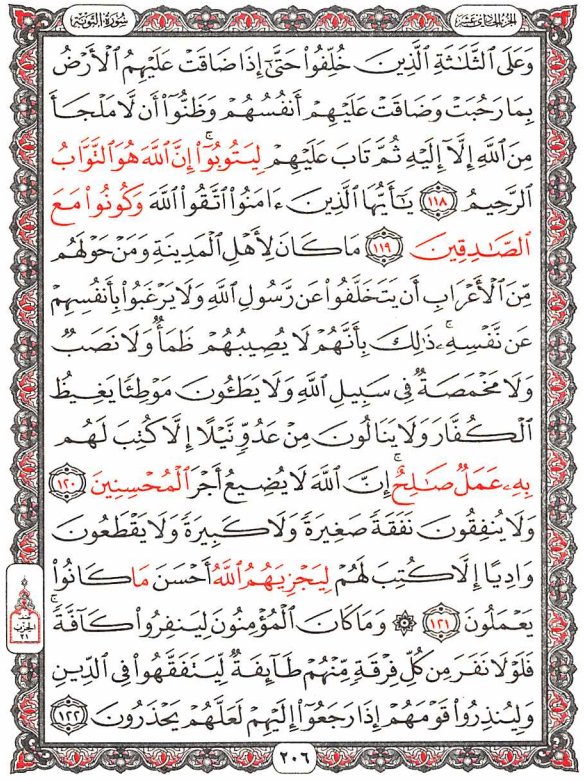 سُورَةُ التَّوۡبَةِ
الجزء الحادي عشر
وَعَلَى ٱلثَّلَٰثَةِ ٱلَّذِينَ خُلِّفُوا۟ حَتَّىٰٓ إِذَا ضَاقَتۡ عَلَيۡهِمُ ٱلۡأَرۡضُ
بِمَا رَحُبَتۡ وَضَاقَتۡ عَلَيۡهِمۡ أَنفُسُهُمۡ وَظَنُّوٓا۟ أَن لَّا مَلۡجَأَ
مِنَ ٱللَّهِ إِلَّآ إِلَيۡهِ ثُمَّ تَابَ عَلَيۡهِمۡ لِيَتُوبُوٓا۟ۚ إِنَّ ٱللَّهَ هُوَ ٱلتَّوَّابُ
ٱلرَّحِيمُ ١١٨ يَٰٓأَيُّهَا ٱلَّذِينَ ءَامَنُوا۟ ٱتَّقُوا۟ ٱللَّهَ وَكُونُوا۟ مَعَ
ٱلصَّٰدِقِينَ ١١٩ مَا كَانَ لِأَهۡلِ ٱلۡمَدِينَةِ وَمَنۡ حَوۡلَهُم
مِّنَ ٱلۡأَعۡرَابِ أَن يَتَخَلَّفُوا۟ عَن رَّسُولِ ٱللَّهِ وَلَا يَرۡغَبُوا۟ بِأَنفُسِهِمۡ
عَن نَّفۡسِهِۦۚ ذَٰلِكَ بِأَنَّهُمۡ لَا يُصِيبُهُمۡ ظَمَأٌ وَلَا نَصَبٌ
وَلَا مَخۡمَصَةٌ فِى سَبِيلِ ٱللَّهِ وَلَا يَطَـُٔونَ مَوۡطِئًا يَغِيظُ
ٱلۡكُفَّارَ وَلَا يَنَالُونَ مِنۡ عَدُوٍّ نَّيۡلًا إِلَّا كُتِبَ لَهُم
بِهِۦ عَمَلٌ صَٰلِحٌۚ إِنَّ ٱللَّهَ لَا يُضِيعُ أَجۡرَ ٱلۡمُحۡسِنِينَ ١٢٠
وَلَا يُنفِقُونَ نَفَقَةً صَغِيرَةً وَلَا كَبِيرَةً وَلَا يَقۡطَعُونَ
وَادِيًا إِلَّا كُتِبَ لَهُمۡ لِيَجۡزِيَهُمُ ٱللَّهُ أَحۡسَنَ مَا كَانُوا۟
يَعۡمَلُونَ ١٢١ ۞ وَمَا كَانَ ٱلۡمُؤۡمِنُونَ لِيَنفِرُوا۟ كَآفَّةًۚ
فَلَوۡلَا نَفَرَ مِن كُلِّ فِرۡقَةٍ مِّنۡهُمۡ طَآئِفَةٌ لِّيَتَفَقَّهُوا۟ فِى ٱلدِّينِ
وَلِيُنذِرُوا۟ قَوۡمَهُمۡ إِذَا رَجَعُوٓا۟ إِلَيۡهِمۡ لَعَلَّهُمۡ يَحۡذَرُونَ ١٢٢
الحزب
٢١
٢٠٦